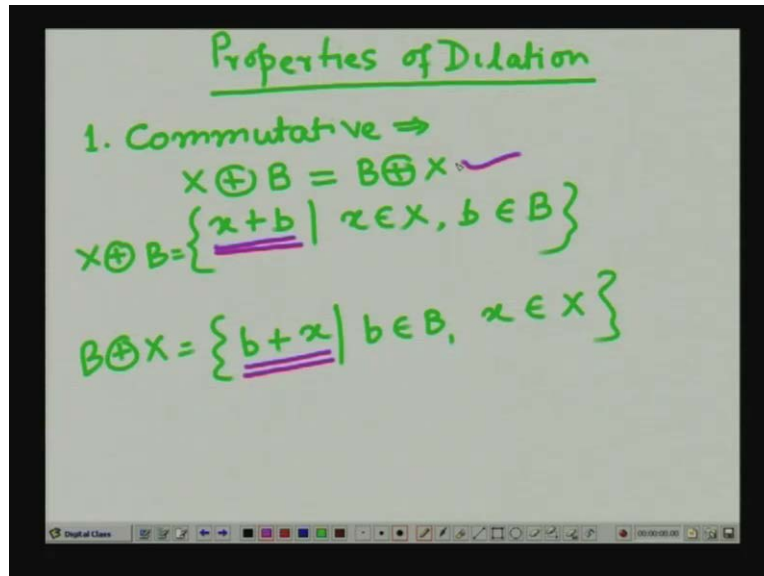 Properties of Dilation
1. Commutative ⇒
X ⊕ B = B ⊕ X
X ⊕ B = { x + b | x ∈ X, b ∈ B }
B ⊕ X = { b + x | b ∈ B, x ∈ X }
Digital Class 00:00:00.00